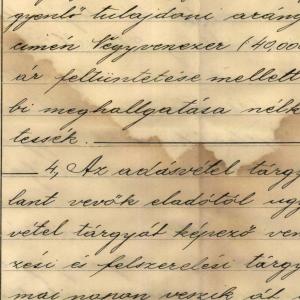 gyenlő tulajdoni arány
címén Négyvenezer (40,000
ár feltüntetése mellett
bi meghallgatása nélk
tessék.
4, Az adásvétel tárgy
lant vevők eladótól ugy
vétel tárgyát képező ven
zési és felszerelési tárgy
mai napon veszik át